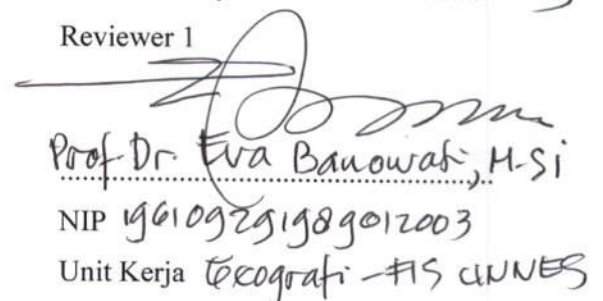 Reviewer 1
Prof. Dr. Eva Banowati, M.Si
NIP 196109291989012003
Unit Kerja Geografi - FIS UNNES